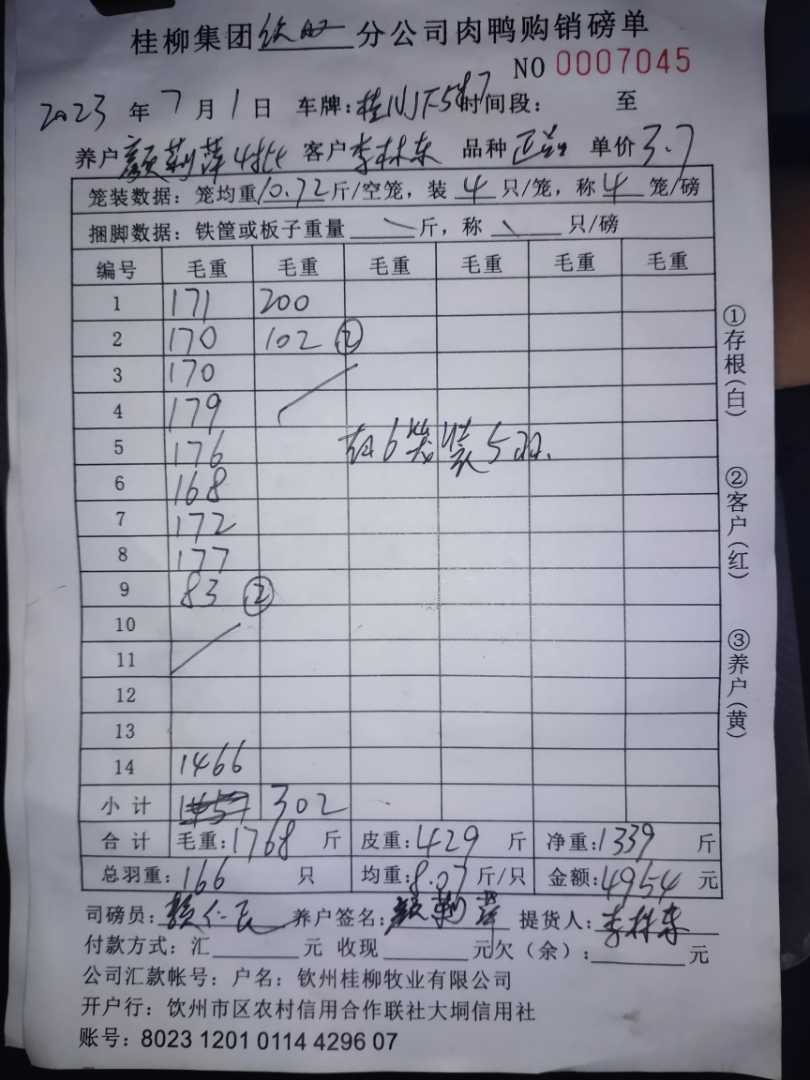 桂柳集团钦州分公司肉鸭购销磅单
NO 0007045
2023年7月1日 车牌:桂N 时间段: 至
养户颜莉萍 客户李林东 品种 单价3.7
笼装数据:笼均重10.72斤/空笼,装4只/笼,称4笼/磅
捆脚数据:铁筐或板子重量\斤,称\只/磅
编号 毛重 毛重 毛重 毛重 毛重 毛重
1 171 200
2 170 102 ②
3 170
4 179
5 176 有6笼装5只.
6 168
7 172
8 177
9 83 ②
10
11
12
13
14 1466
小计 1457 302
合计 毛重:1768斤 皮重:429斤 净重:1339斤
总羽重:166只 均重:8.07斤/只 金额:4954元
司磅员:颜仁民 养户签名:颜莉萍 提货人:李林东
付款方式:汇 元 收现 元欠(余): 元
公司汇款帐号:户名:钦州桂柳牧业有限公司
开户行:钦州市区农村信用合作联社大垌信用社
账号:8023 1201 0114 4296 07
①存根(白)
②客户(红)
③养户(黄)